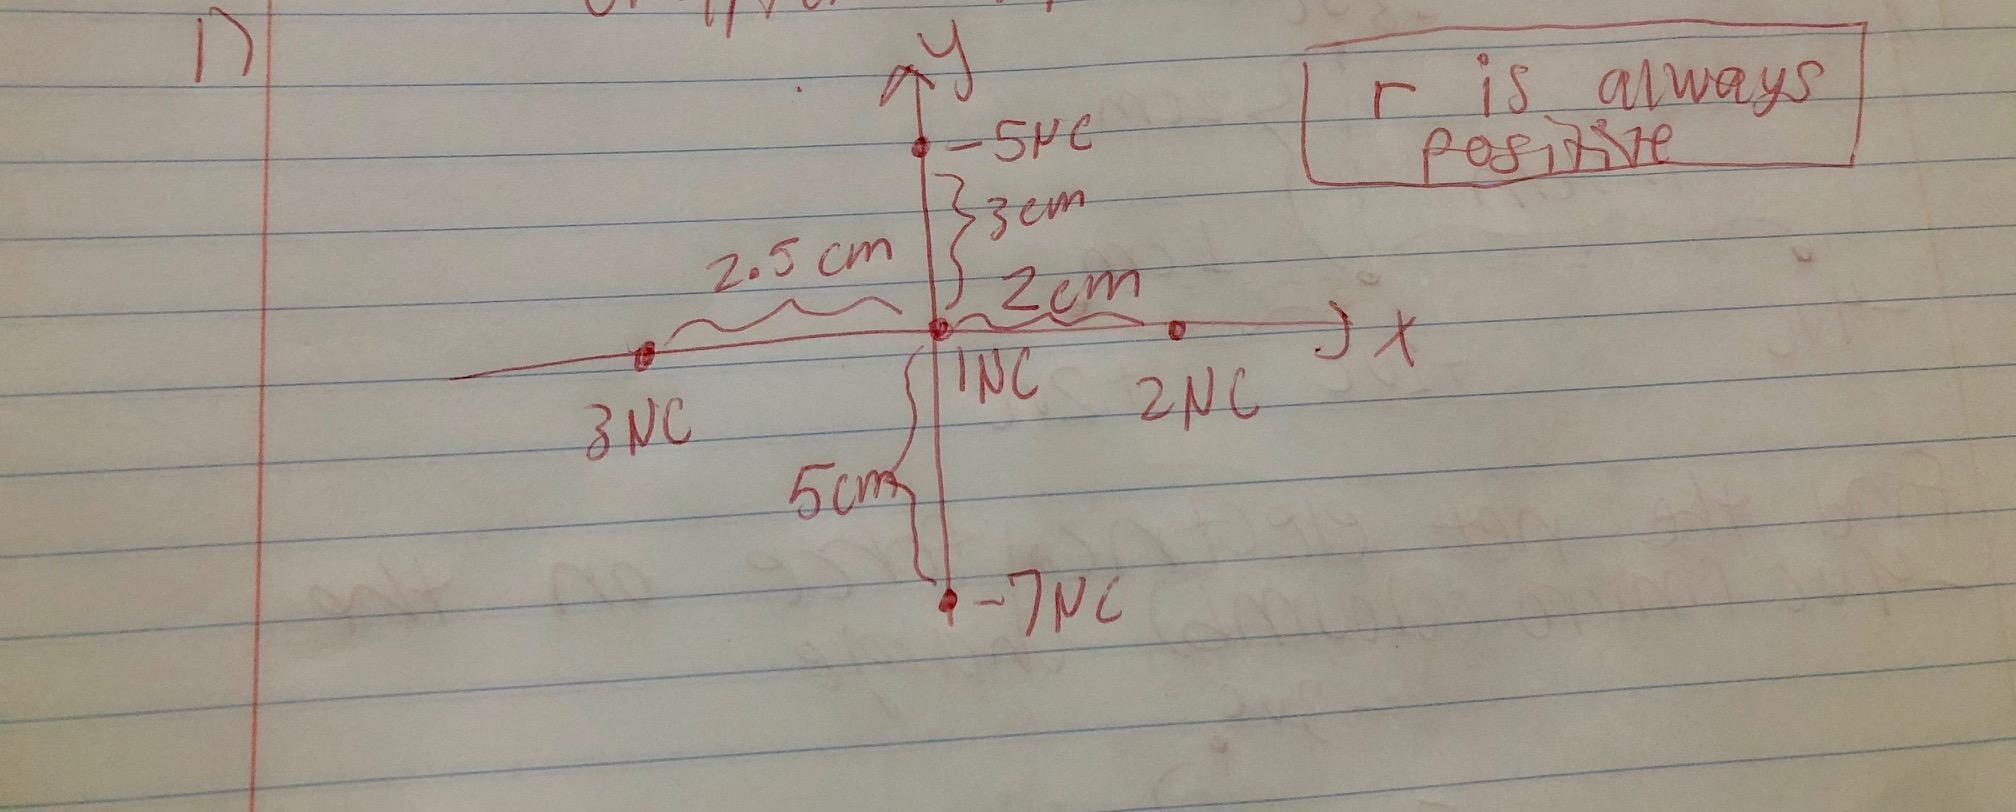 1)
y
-5NC
r is always
positive
3cm
2.5 cm
2cm
x
1NC
2NC
3NC
5cm
-7NC